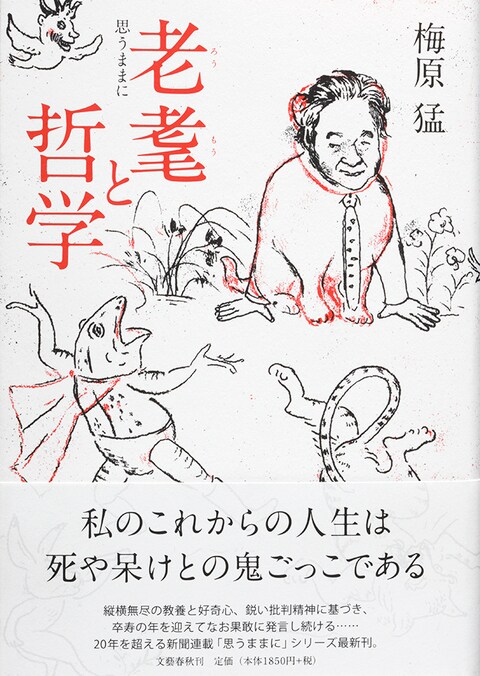 梅原 猛
老耄と哲学
ろう もう
思うままに
私のこれからの人生は
死や呆けとの鬼ごっこである
縦横無尽の教養と好奇心、鋭い批判精神に基づき、
卒寿の年を迎えてなお果敢に発言し続ける……
20年を超える新聞連載「思うままに」シリーズ最新刊。
文藝春秋刊 定価（本体1850円+税）